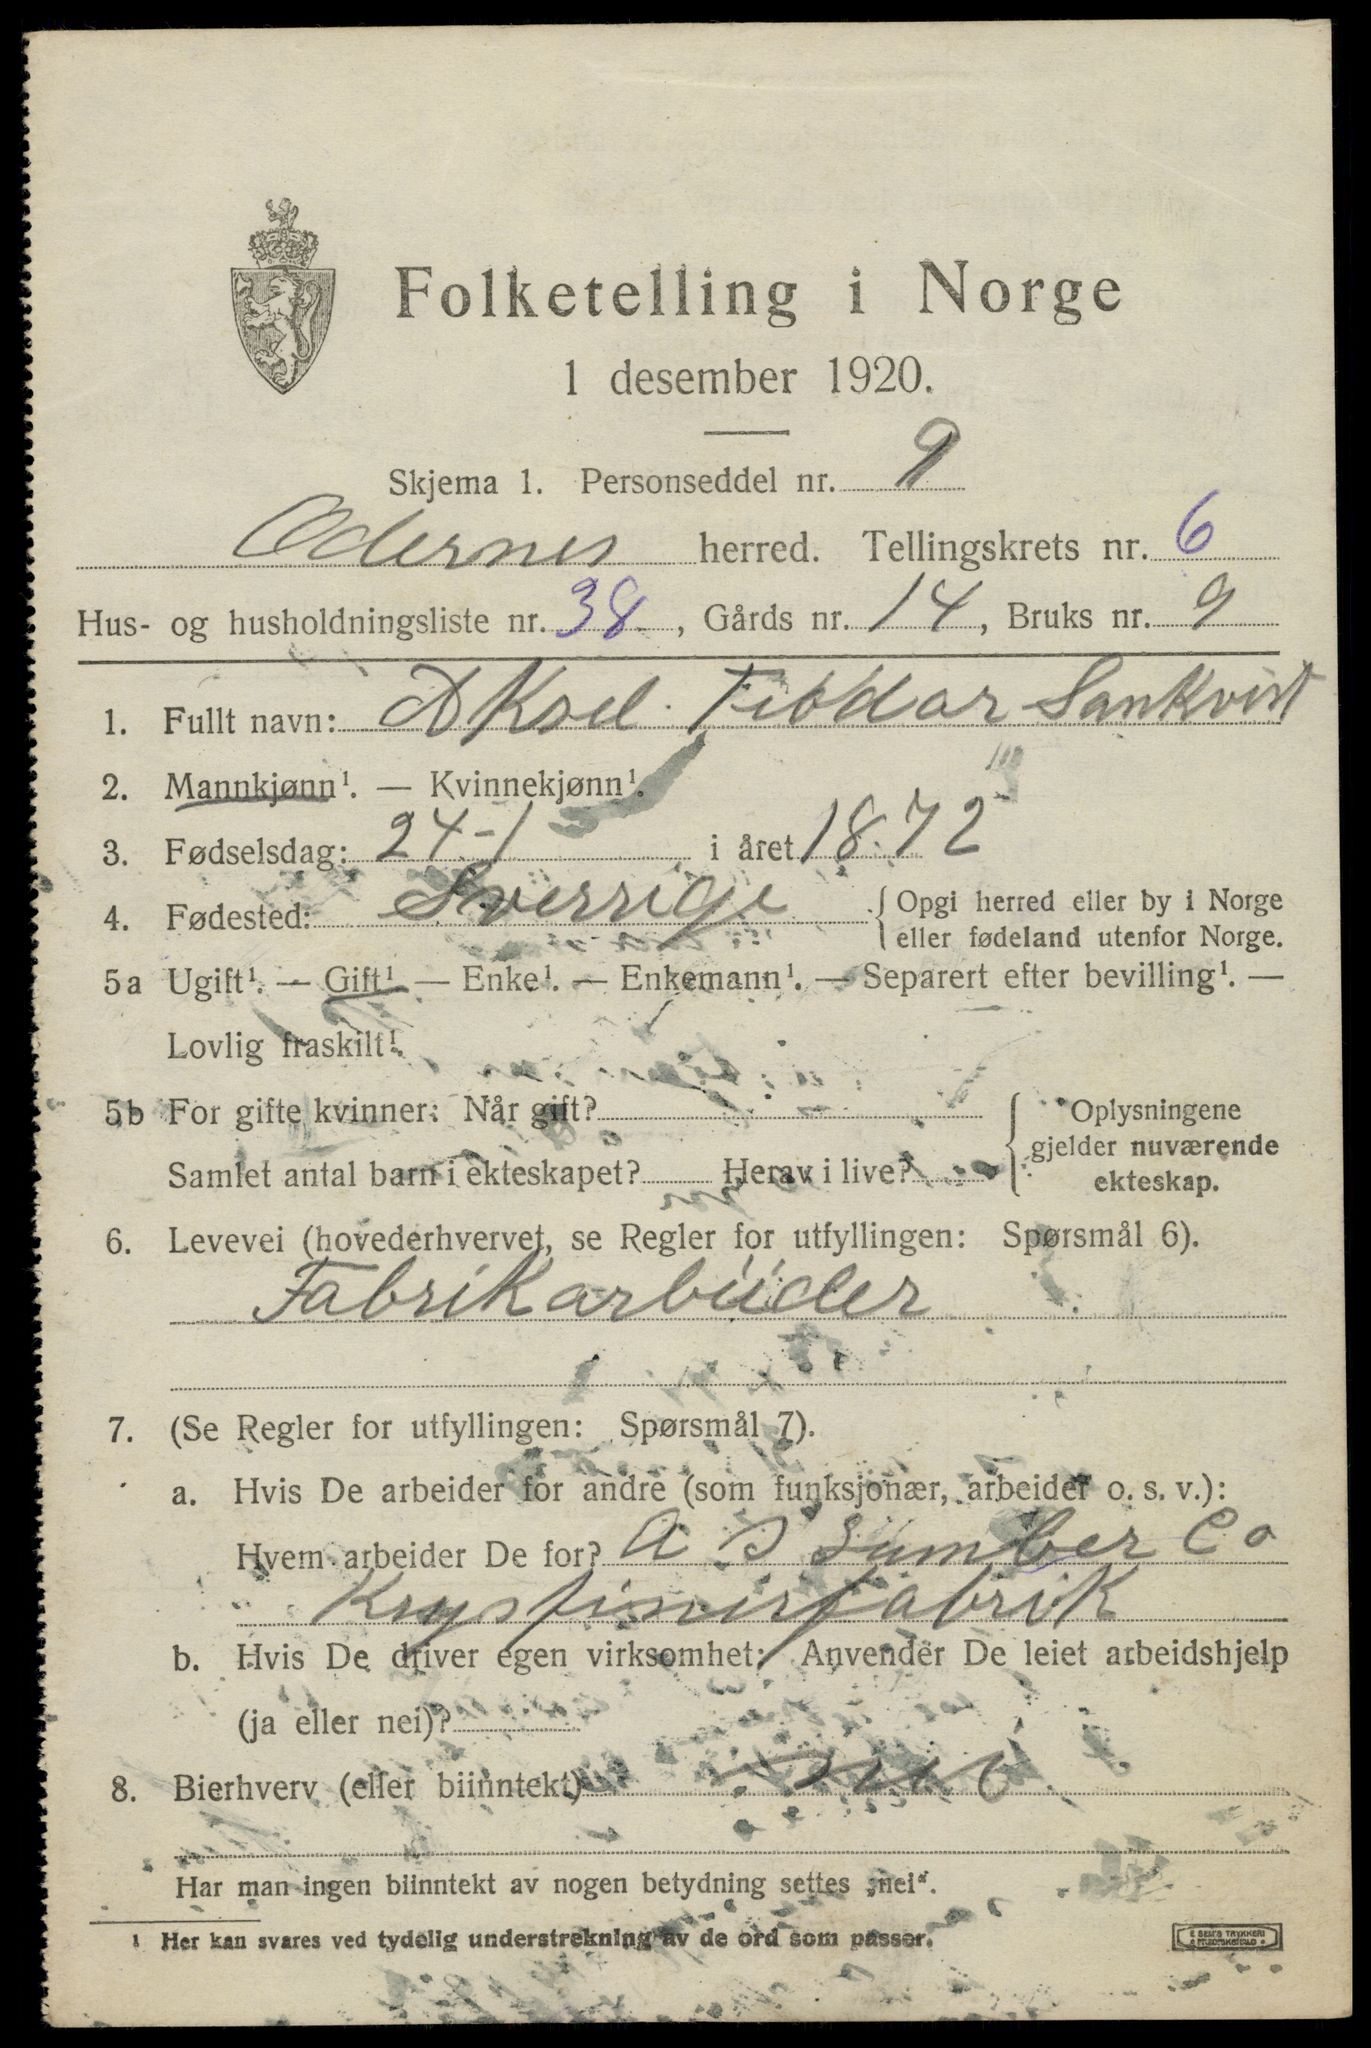 Folketelling i Norge
1 desember 1920.
Skjema 1. Personseddel nr. 9
Odernes herred. Tellingskrets nr. 6
Hus- og husholdningsliste nr. 38, Gårds nr. 14, Bruks nr. 9
1. Fullt navn: Aksel Feodar Sankvist
2. Mannkjønn¹. — Kvinnekjønn¹.
3. Fødselsdag: 24-1 i året 1872
4. Fødested: Sverrige { Opgi herred eller by i Norge
eller fødeland utenfor Norge.
5a Ugift¹. — Gift¹ — Enke¹. — Enkemann¹. — Separert efter bevilling¹. —
Lovlig fraskilt¹.
5b For gifte kvinner: Når gift? { Oplysningene
gjelder nuværende
Samlet antal barn i ekteskapet? Herav i live?
ekteskap.
6. Levevei (hovederhvervet, se Regler for utfyllingen: Spørsmål 6).
Fabrikarbiider
7. (Se Regler for utfyllingen: Spørsmål 7).
a. Hvis De arbeider for andre (som funksjonær, arbeider o. s. v.):
Hvem arbeider De for? A Lumber Co
fabrik
b. Hvis De driver egen virksomhet: Anvender De leiet arbeidshjelp
(ja eller nei)?
8. Bierhverv (eller biinntekt) nei
Har man ingen biinntekt av nogen betydning settes „nei“.
¹ Her kan svares ved tydelig understrekning av de ord som passer.